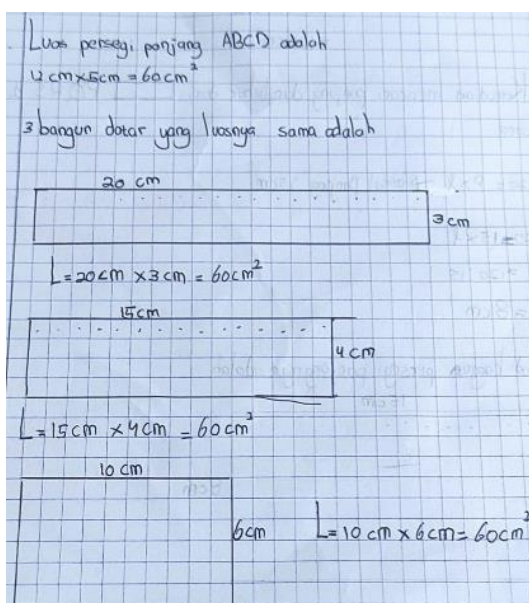 Luas persegi panjang ABCD adalah
12 cm x 5cm = 60 cm²
3 bangun datar yang luasnya sama adalah
20 cm
3 cm
L = 20 cm x 3 cm = 60 cm²
15 cm
4 cm
L = 15 cm x 4 cm = 60 cm²
10 cm
6 cm
L = 10 cm x 6 cm = 60 cm²